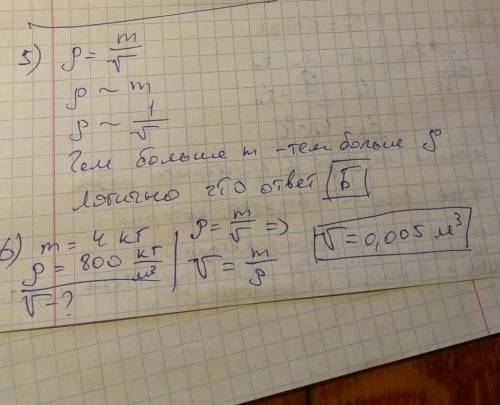 5) ρ = m/V
ρ ~ m
ρ ~ 1/V
Чем больше m - тем больше ρ
Логично что ответ Б
6) m = 4 кг
ρ = 800 кг/м³
V - ?
ρ = m/V =>
V = m/ρ
V = 0,005 м³